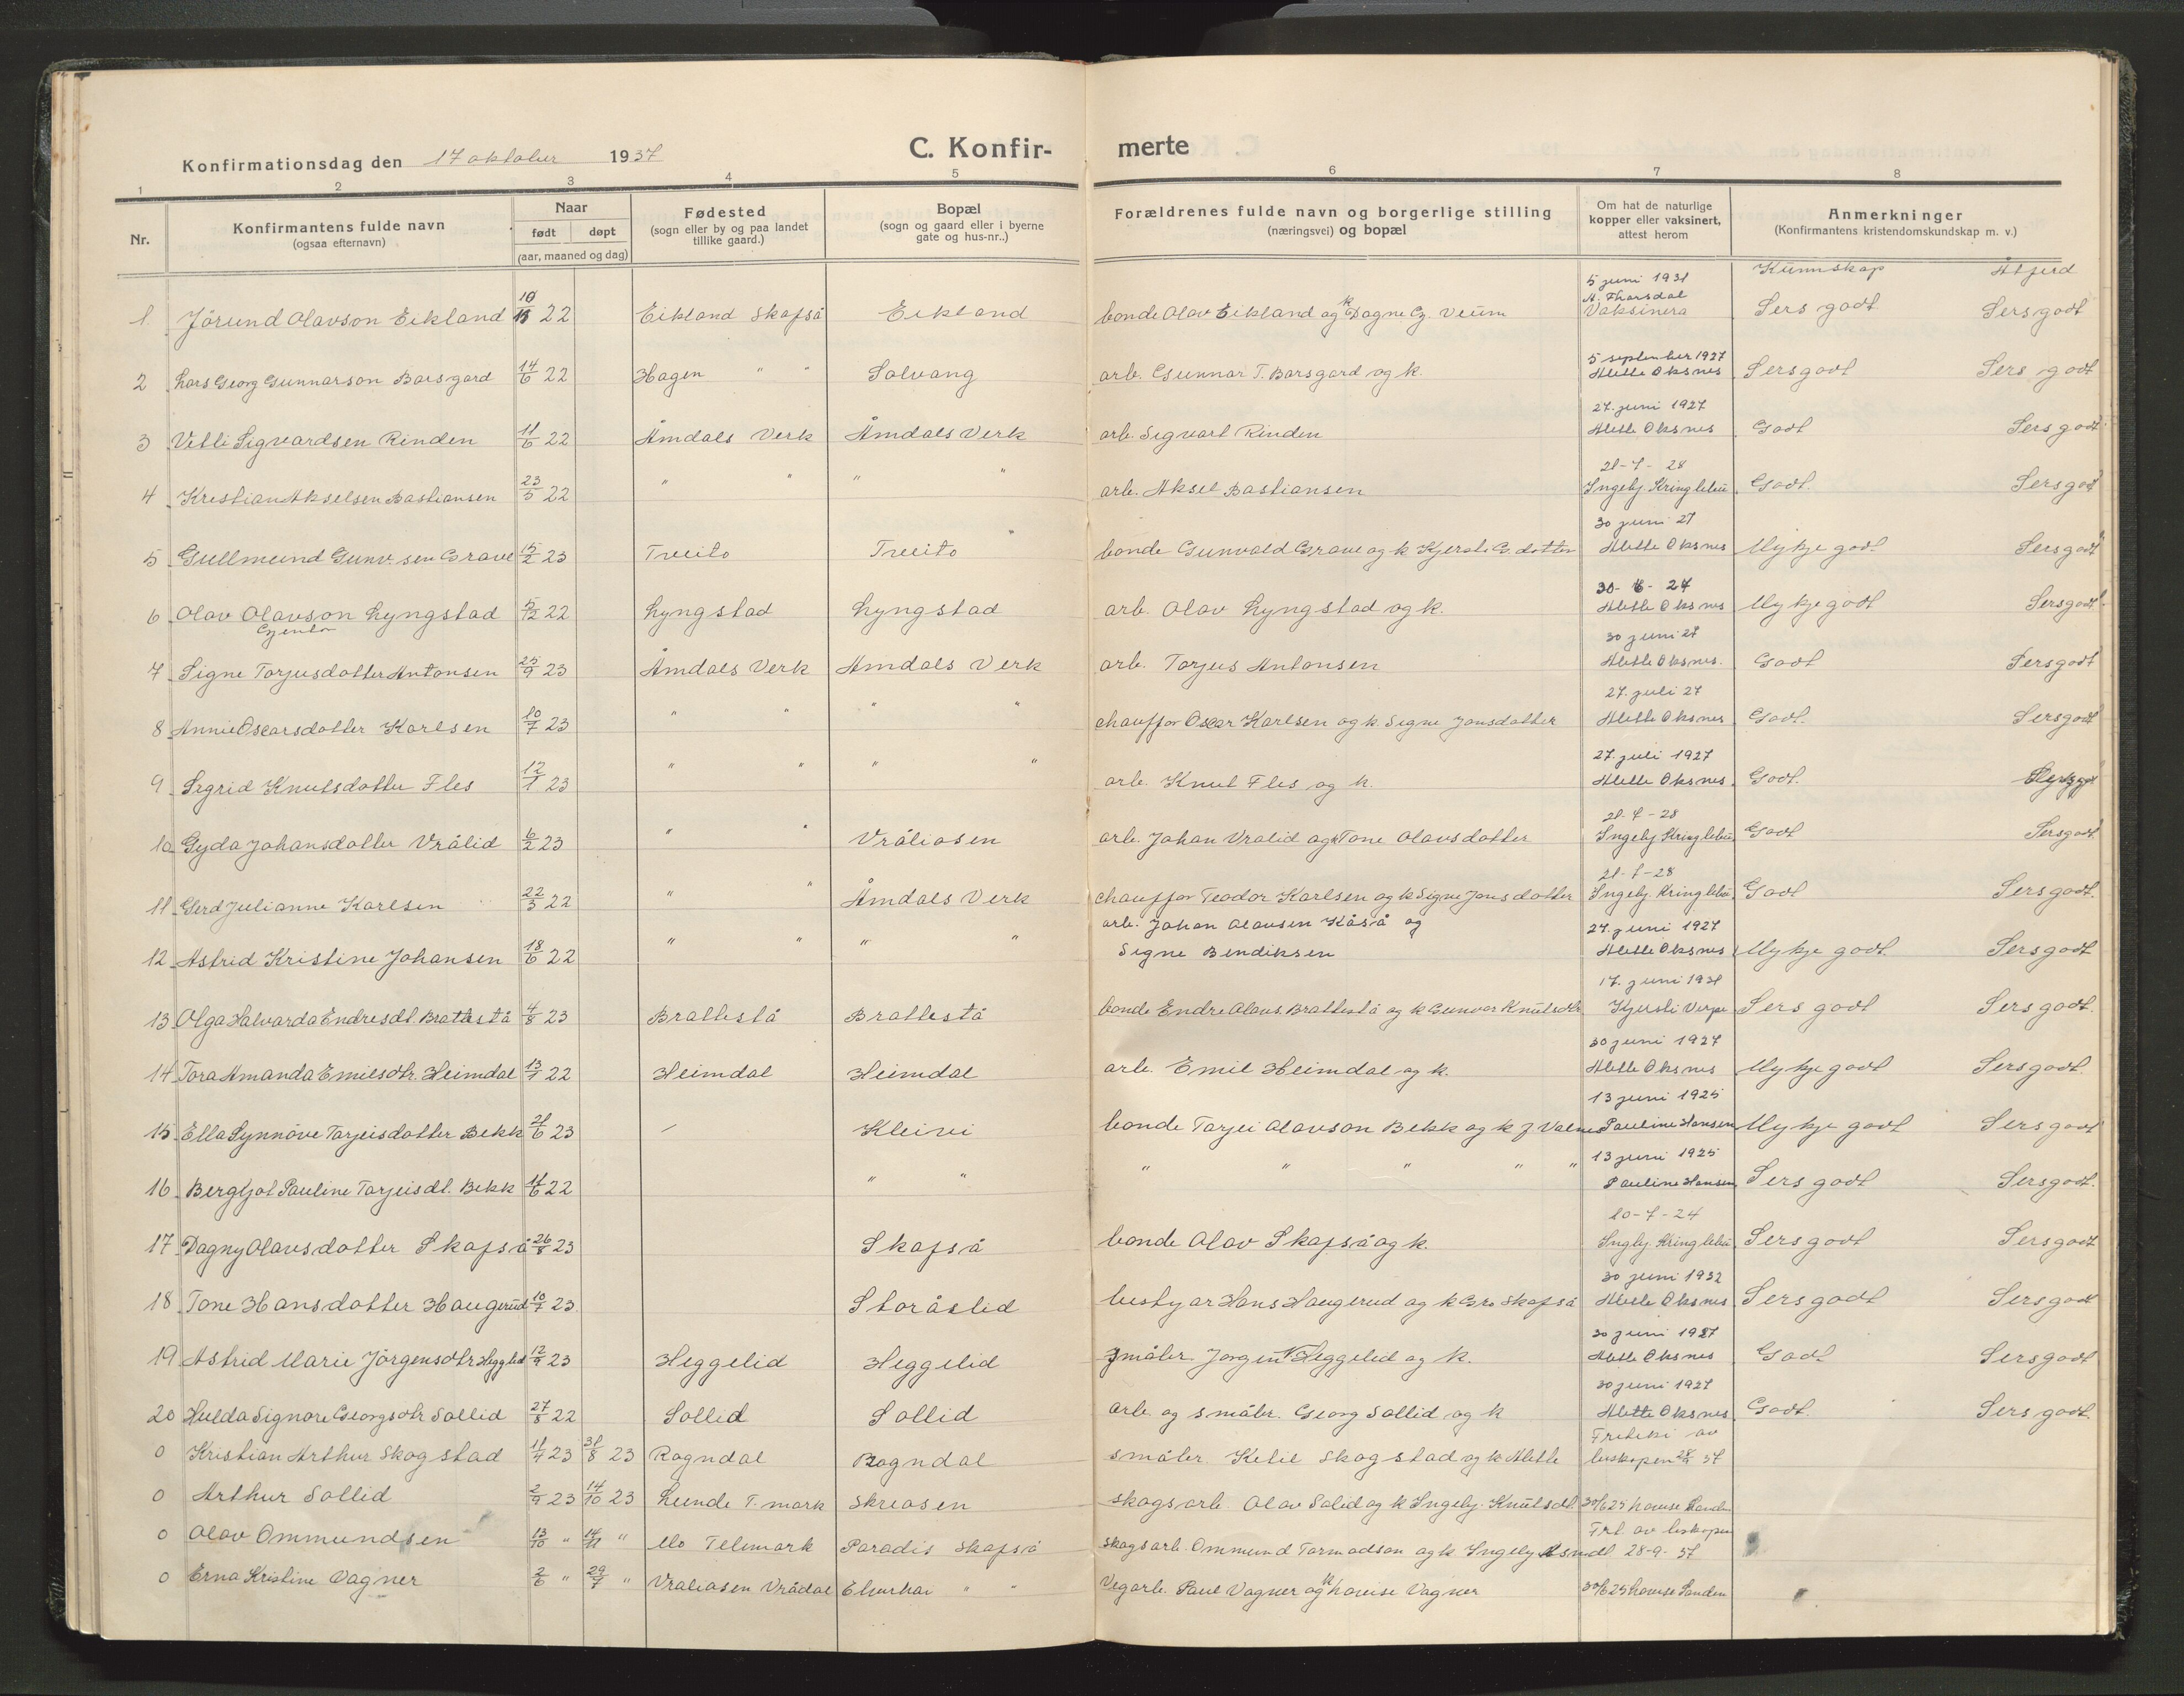 C. Konfir- merte
Konfirmationsdag den 17 oktober 1937
1 2 3 4 5 6 7 8
Nr. Konfirmantens fulde navn (ogsaa efternavn) Naar født døpt (aar, maaned og dag) Fødested (sogn eller by og paa landet tillike gaard.) Bopæl (sogn og gaard eller i byerne gate og hus-nr..) Forældrenes fulde navn og borgerlige stilling (næringsvei) og bopæl Om hat de naturlige kopper eller vaksinert, attest herom Anmerkninger (Konfirmantens kristendomskundskap m. v.)
Kunnskap Åtferd
1 Jörund Olavson Eikland 22 Eikland Skafså Eikland bonde Olav Eikland og k Dagne G. Veum 5 juni 1931 Vaksinera Sers godt Sers godt
2 Lars Georg Gunnarson Barsgard 14/6 22 Hagen " " Solvang arb. Gunnar T. Barsgard og k. 5 september 1927 Alette Oksnes Sers godt Sers godt
3 Vetli Sigvardsen Rinden 11/6 22 Åmdals Verk Åmdals Verk arb. Sigvart Rinden 27. juni 1927 Alette Oksnes Godt Sers godt
4 Kristian Akselsen Bastiansen 23/5 22 " " " " arb. Aksel Bastiansen 21-7-28 Ingebj. Kringlebu Godt. Sers godt
5 Gullmund Gunv.sen Grave 15/2 23 Treito Treito " bonde Gunvald Grave og k Kjersti G. dotter 30 juni 27 Alette Oksnes Mykje godt Sers godt
6 Olav Olavson Lyngstad 5/12 22 Lyngstad Lyngstad arb. Olav Lyngstad og k. 30-6-27 Alette Oksnes Mykje godt Sers godt
7 Signe Torjusdotter Antonsen 25/9 23 Åmdals Verk Åmdals Verk arb. Torjus Antonsen 30 juni 27 Alette Oksnes. Godt Sers godt
8 Annie Oscarsdotter Karlsen 10/7 23 " " " " chauffør Oscar Karlsen og k. Signe Jonsdotter 27. juli 27 Alette Oksnes Godt. Sers godt
9 Sigrid Knutsdotter Fles 12/1 23 " " " " arb. Knut Fles og k. 27. juli 1927 Alette Oksnes Godt.
10 Gyda Johansdotter Vrålid 6/2 23 " " Vråliosen arb. Johan Vralid og k Tone Olavsdotter 21-7-28 Ingebj Kringlebu Godt Sers godt
11 Gerd Julianne Karlsen 22/5 22 " " Åmdals Verk chauffør Teodor Karlsen og k Signe Jonsdotter 21-7-28 Ingebj Kringlebu Godt Sers godt.
12 Astrid Kristine Johansen 18/6 22 " " " " arb. Johan Olavsen Kåså og
Signe Bendiksen 27. juni 1927 Alette Oksnes Mykje godt. Sers godt
13 Olga Halvarda Endresdt. Brattestå 4/8 23 Brattestå Brattestå bonde Endre Olavs. Brattestå og k Gunvor Knutsdtr 17. juni 1931 Kjersti Verpe Sers godt Sers godt.
14 Tora Amanda Emilsdtr. Heimdal 22 Heimdal Heimdal arb. Emil Heimdal og k. 30 juni 1927 Alette Oksnes Mykje godt Sers godt.
15 Ella Synnöve Tarjeisdotter Bekk 21/6 23 Kleivi bonde Tarjei Olavson Bekk og k 13 juni 1925 Pauline Hansen Mykje godt Sers godt
16 Bergljot Pauline Tarjeisdt. Bekk 22 " " " " " " " 13 juni 1925 Pauline Hansen Sers godt Sers godt.
17 Dagny Olavsdotter Skafså 26/8 23 Skafså bonde Olav Skafså og k. 10-7-24 Ingbj Kringlebu Sers godt Sers godt
18 Tone Hansdotter Haugerud 10/7 23 Storåslid Hans Haugerud og k Gro Skafså 30 juni 1932 Alette Oksnes Sers godt Sers godt
19 Astrid Marie Jörgensdtr Hegglid 23 Heggelid Heggelid småbr. Jørgen Heggelid og k. 30 juni 1927 Alette Oksnes Godt Sers godt
20 Hulda Signore Georgsdtr Sollid 27/8 22 Sollid Sollid arb. og småbr. Georg Sollid og k 30 juni 1927 Alette Oksnes Godt. Sers godt.
0 Kristian Arthur Skogstad 23 31/8 23 Rogndal Rogndal småbr. Ketil Skogstad og k Alette av biskopen 37
0 Arthur Sollid 2/9 23 14/10 23 Lunde T. mark Skreosen skogsarb. Olav Solid og k Ingebj. Knutsdt. 30/6 25 Lovise Sanden
0 Olav Ommundsen 13/10 " 14/11 " Mo Telemark Paradis Skafså skogsarb. Ommund Tarmodson og k Ingebj Frt. av biskopen 28-9-37
0 Erna Kristine Vagner 2/6 " 29/7 " Vraliosen Vrådal " " Vegarb. Paul Vagner og k Lovise Vagner 30/6 25 Lovise Sanden